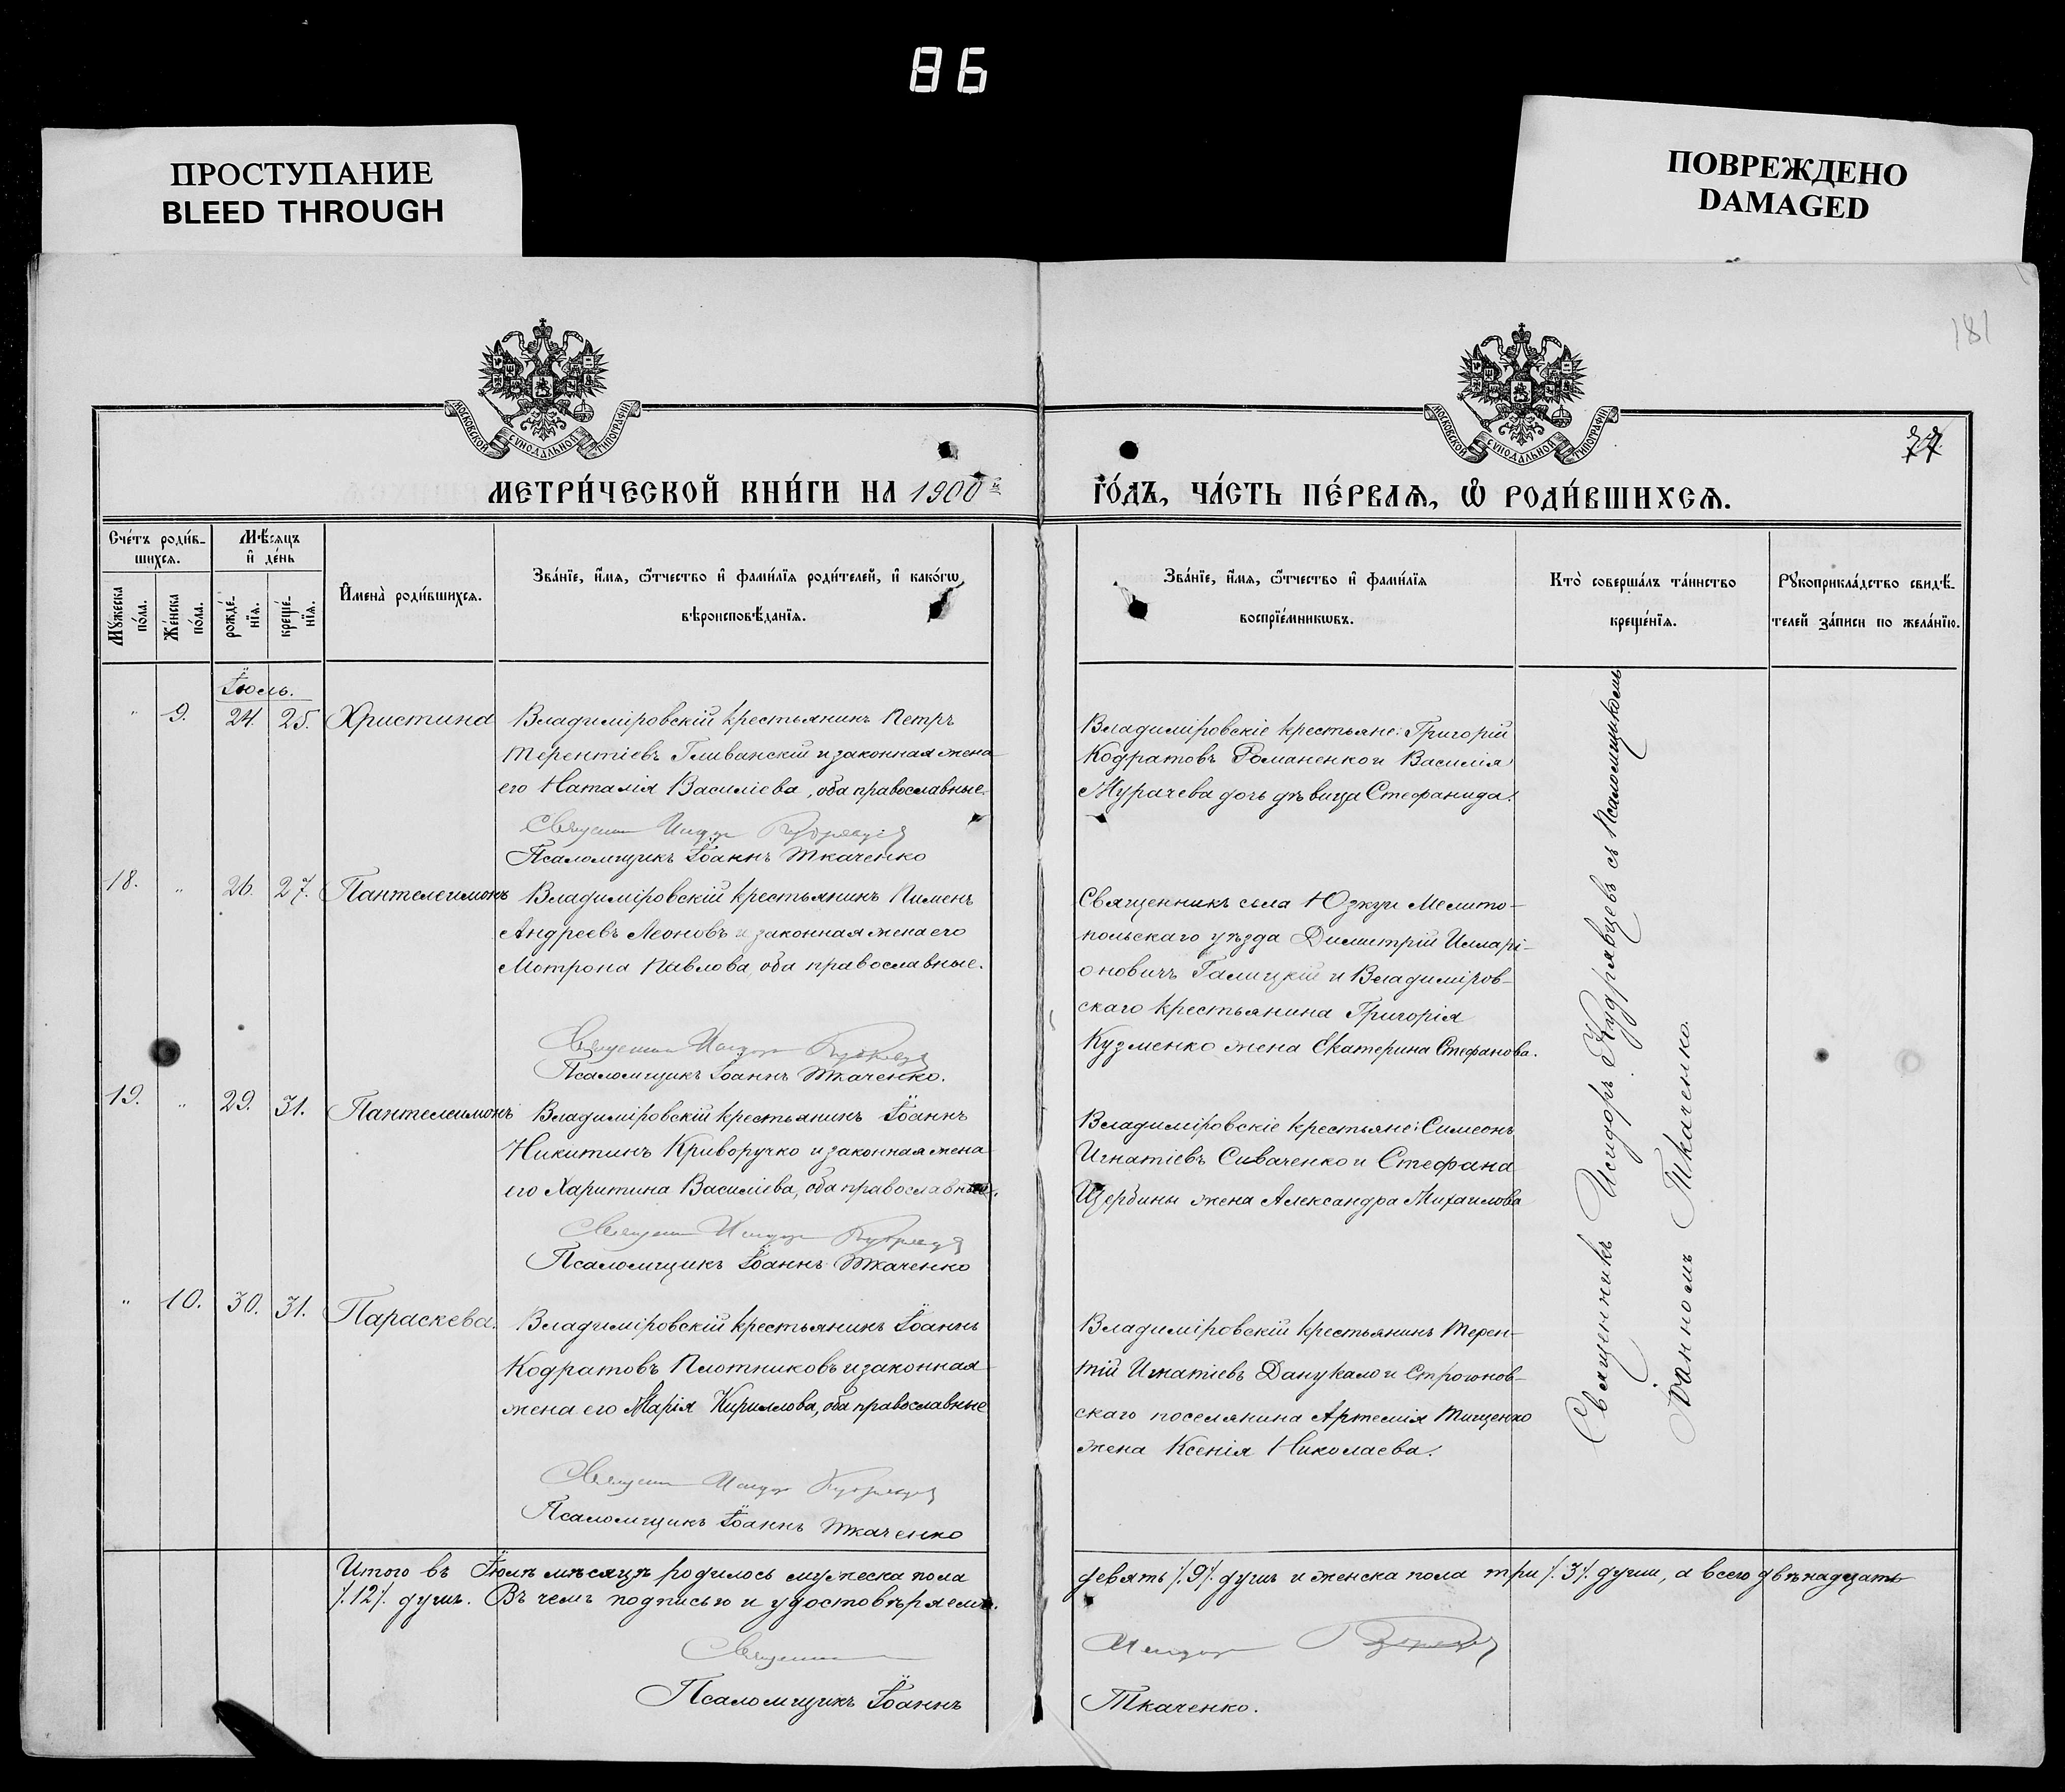 86
ПРОСТУПАНИЕ
BLEED THROUGH
ПОВРЕЖДЕНО
DAMAGED
181
МОСКОВСКОЙ СУНОДАЛЬНОЙ ТИПОГРАФІИ
МОСКОВСКОЙ СУНОДАЛЬНОЙ ТИПОГРАФІИ
МЕТРИ́ЧЕСКОЙ КНИ́ГИ НА 1900й
ГО́ДЪ, ЧА́СТЬ ПЕ́РВАѦ, Ѡ҆ РОДИ́ВШИХСѦ.
Сче́тъ роди́в-
шихсѧ.
Мꙋ́жеска
по́ла.
Же́нска
по́ла.
Мѣ́сѧцъ
и҆ де́нь
рожде́-
нїѧ.
креще́-
нїѧ.
И҆мена̀ роди́вшихсѧ.
Зва́нїе, и҆́мѧ, ѻ҆́тчество и҆ фами́лїѧ роди́телей, и҆ како́гѡ
вѣроисповѣ́данїѧ.
Зва́нїе, и҆́мѧ, ѻ҆́тчество и҆ фами́лїѧ
воспрїе́мникѡвъ.
Кто̀ соверша́лъ та́инство
креще́нїѧ.
Рꙋкоприкла́дство свидѣ́-
телей за́писи по жела́нїю.
Іюль.
" 9. 24. 25. Христина
Владиміровскій крестьянинъ Петръ
Терентіевъ Гливанскій и законная жена
его Наталія Василіева, оба православные.
Псаломщикъ Іоаннъ Ткаченко
Владиміровскіе крестьяне: Григорій
Кодратовъ Романенко и Василія
Мурачева дочь дѣвица Стефанида.
18. " 26. 27. Пантелеимонъ
Владиміровскій крестьянинъ Пименъ
Андреевъ Леоновъ и законная жена его
Мотрона Павлова, оба православные.
Псаломщикъ Іоаннъ Ткаченко.
Священникъ села Юзкуи Мелито-
польскаго уѣзда Димитрій Илларі-
оновичъ Галицкій и Владиміров-
скаго крестьянина Григорія
Кузменко жена Екатерина Стефанова.
19. " 29. 31. Пантелеимонъ
Владиміровскій крестьянинъ Іоаннъ
Никитинъ Криворучко и законная жена
его Харитина Василіева, оба православные.
Псаломщикъ Іоаннъ Ткаченко
Владиміровскіе крестьяне: Симеонъ
Игнатіевъ Сиваченко и Стефана
Щербины жена Александра Михаилова
" 10. 30. 31. Параскева.
Владиміровскій крестьянинъ Іоаннъ
Кодратовъ Плотниковъ и законная
жена его Марія Кириллова, оба православные
Псаломщикъ Іоаннъ Ткаченко
Владиміровскій крестьянинъ Терен-
тій Игнатіевъ Данукало и Строгонов-
скаго поселянина Артемія Тищенко
жена Ксенія Николаева.
Священникъ Исидоръ Кудрявцевъ съ Псаломщикомъ
Іоанномъ Ткаченко.
Итого въ Іюлѣ мѣсяцѣ родилось мужеска пола девять /.9/. душъ и женска пола три /.3/. души, а всего двѣнадцать
/.12/. душъ. Въ чемъ подписью и удостовѣряемъ.
Псаломщикъ Іоаннъ Ткаченко.